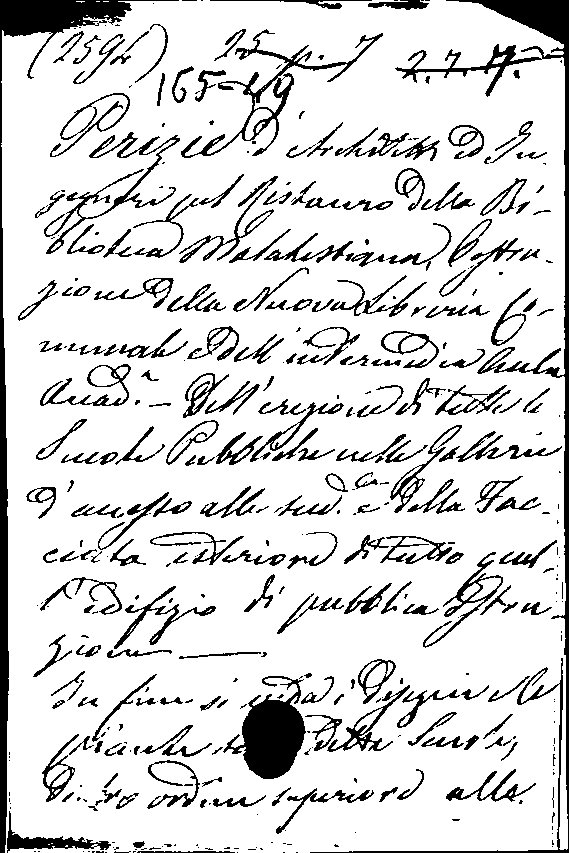 (2594) 25 p. 7 2.7.77.
165-49
Perizie d'Architetti ed In-
gegneri pel Ristauro della Bi-
blioteca Malatestiana, Costru-
zione della Nuova Libreria Co-
munale e dell'intermedia Aula
Quad.ª – Dell'erezione di tutte le
Scuole Pubbliche nelle Gallerie
d'accesso alle sud.e e della Fac-
ciata esteriore di tutto quel-
l'edifizio di pubblica Istru-
zione —
In fine si veda i Disegni e le
piante delle Scuole,
Dietro ordine superiore alla